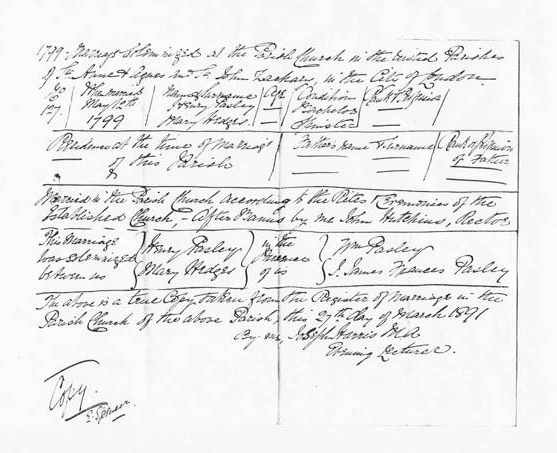 1799. Marriage Solemnized at the Parish Church in the United Parishes
of St. Anne & Agnes and St. John Zachary, in the City of London
No When married Name & Surname Age Condition Rank & Profession
127 May 12th Henry Pasley — Bachelor —
1799 Mary Hedges. — Spinster —
Residence at the time of Marriage Father's name & Surname Rank or Profession
— of this Parish — of Father
Married in the Parish Church according to the Rites & Ceremonies of the
Established Church, - After Banns by me John Hutchins, Rector.
This Marriage Henry Pasley in the Wm Pasley
was solemnized Presence
between us Mary Hedges of us J. James Frances Pasley
The above is a true Copy, taken from the Register of Marriage in the
Parish Church of the above Parish, this 27th Day of March 1891
By me, Joseph Harris M.A
Lecturer.
Copy.